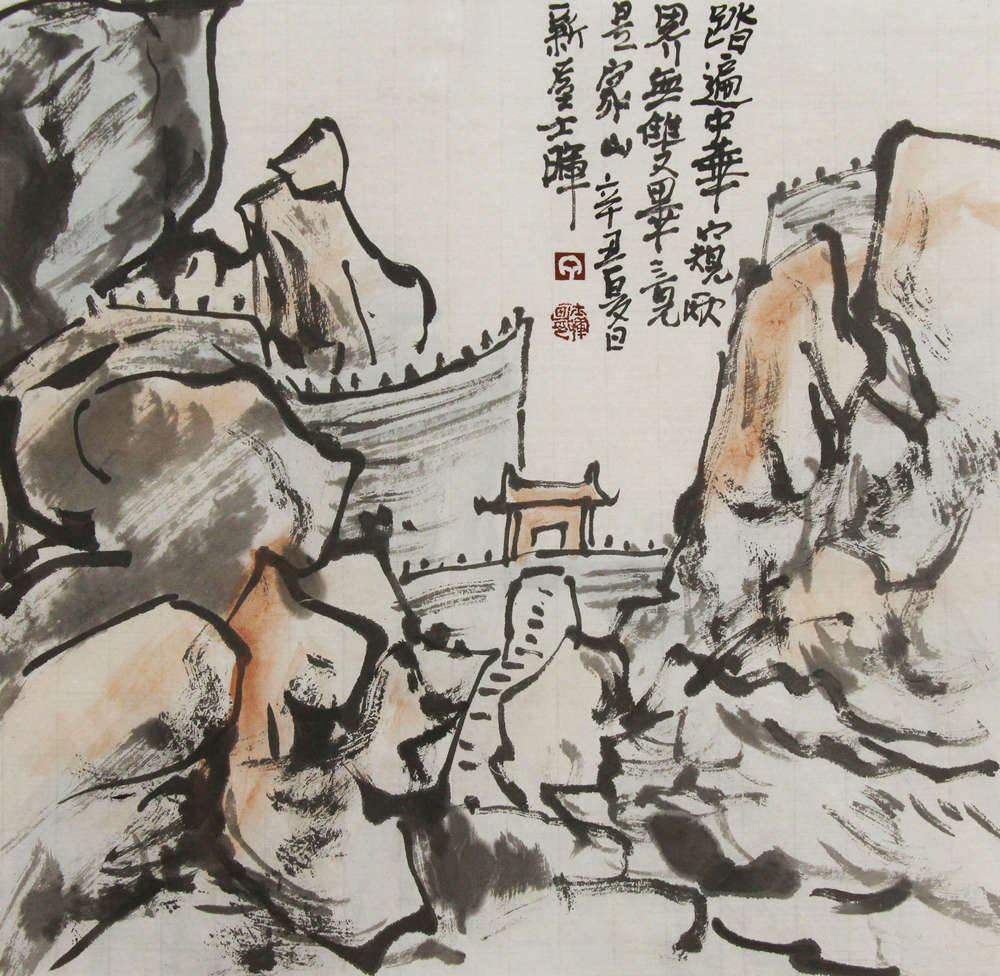 踏遍中華窺歐
界無雙畢竟
是家山 辛丑夏日
新士暉